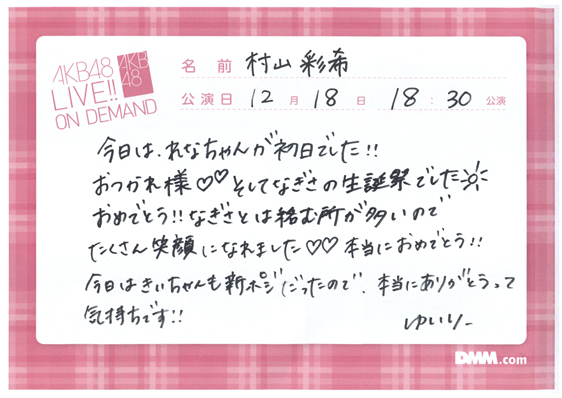 AKB48
LIVE!!
ON DEMAND
AKB
48
名前 村山彩希
公演日 12月18日 18:30公演
今日は、れなちゃんが初日でした!!
おつかれ様♡♡そしてなぎさの生誕祭でした☼
おめでとう!!なぎさとは絡む所が多いので
たくさん笑顔になれました♡♡本当におめでとう!!
今日はきいちゃんも新ポジだったので、本当にありがとうって
気持ちです!!
ゆいりー
DMM.com